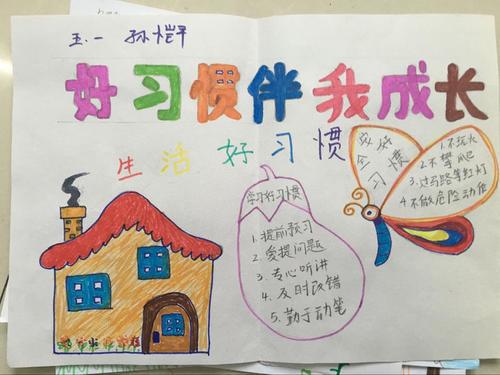 五.一 孙恺平
好习惯伴我成长
生活好习惯
学习好习惯
1.提前预习
2.爱提问题
3.专心听讲
4.及时改错
5.勤于动笔
安全好习惯
1.不玩火
2.不攀爬
3.过马路等红灯
4.不做危险动作